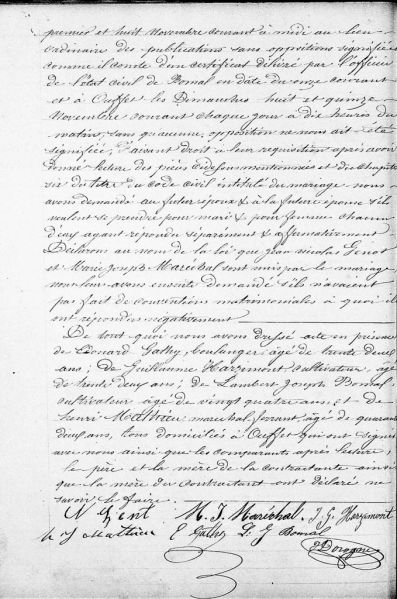 premier et huit Novembre courant à midi au lieu
ordinaire des publications sans oppositions signifiées
comme il conste d'un certificat délivré par l'officier
de l'état civil de Bomal en date du onze courant
et à Ouffet les Dimanches huit et quinze
Novembre courant chaque jour à dix heures du
matin, sans qu'aucune opposition ne nous ait été
signifiée, faisant droit à leur requisition après avoir
donné lecture des pièces cidessus mentionnées et du chapitre
six du titre du code civil intitulé du mariage nous
avons demandé au futur époux & à la future épouse s'ils
veulent se prendre pour mari & pour femme chacun
d'eux ayant répondu séparément & affirmativement
Déclarons au nom de la loi que Jean Nicolas Genot
et Marie Joseph Maréchal sont unis par le mariage
nous leur avons ensuite demandé s'ils n'avaient
pas fait de conventions matrimoniales à quoi ils
ont répondu négativement
De tout quoi nous avons dressé acte en présence
de Edouard Gathy, boulanger, âgé de trente deux
ans; de Guillaume Harzimont cultivateur, âgé
de trente deux ans; de Lambert Joseph Bomal,
cultivateur âgé de vingt quatre ans, et de
henri Mathieu marechal ferrant, âgé de quarante
deux ans, tous domiciliés à Ouffet qui ont signé
avec nous ainsi que les comparants après lecture;
le père et la mère de la contractante ainsi
que la mère du contractant ont déclaré ne
savoir le faire.
M. J. Maréchal J. G. Harzimont
h. J Mathieu E Gathy L. J Bomal